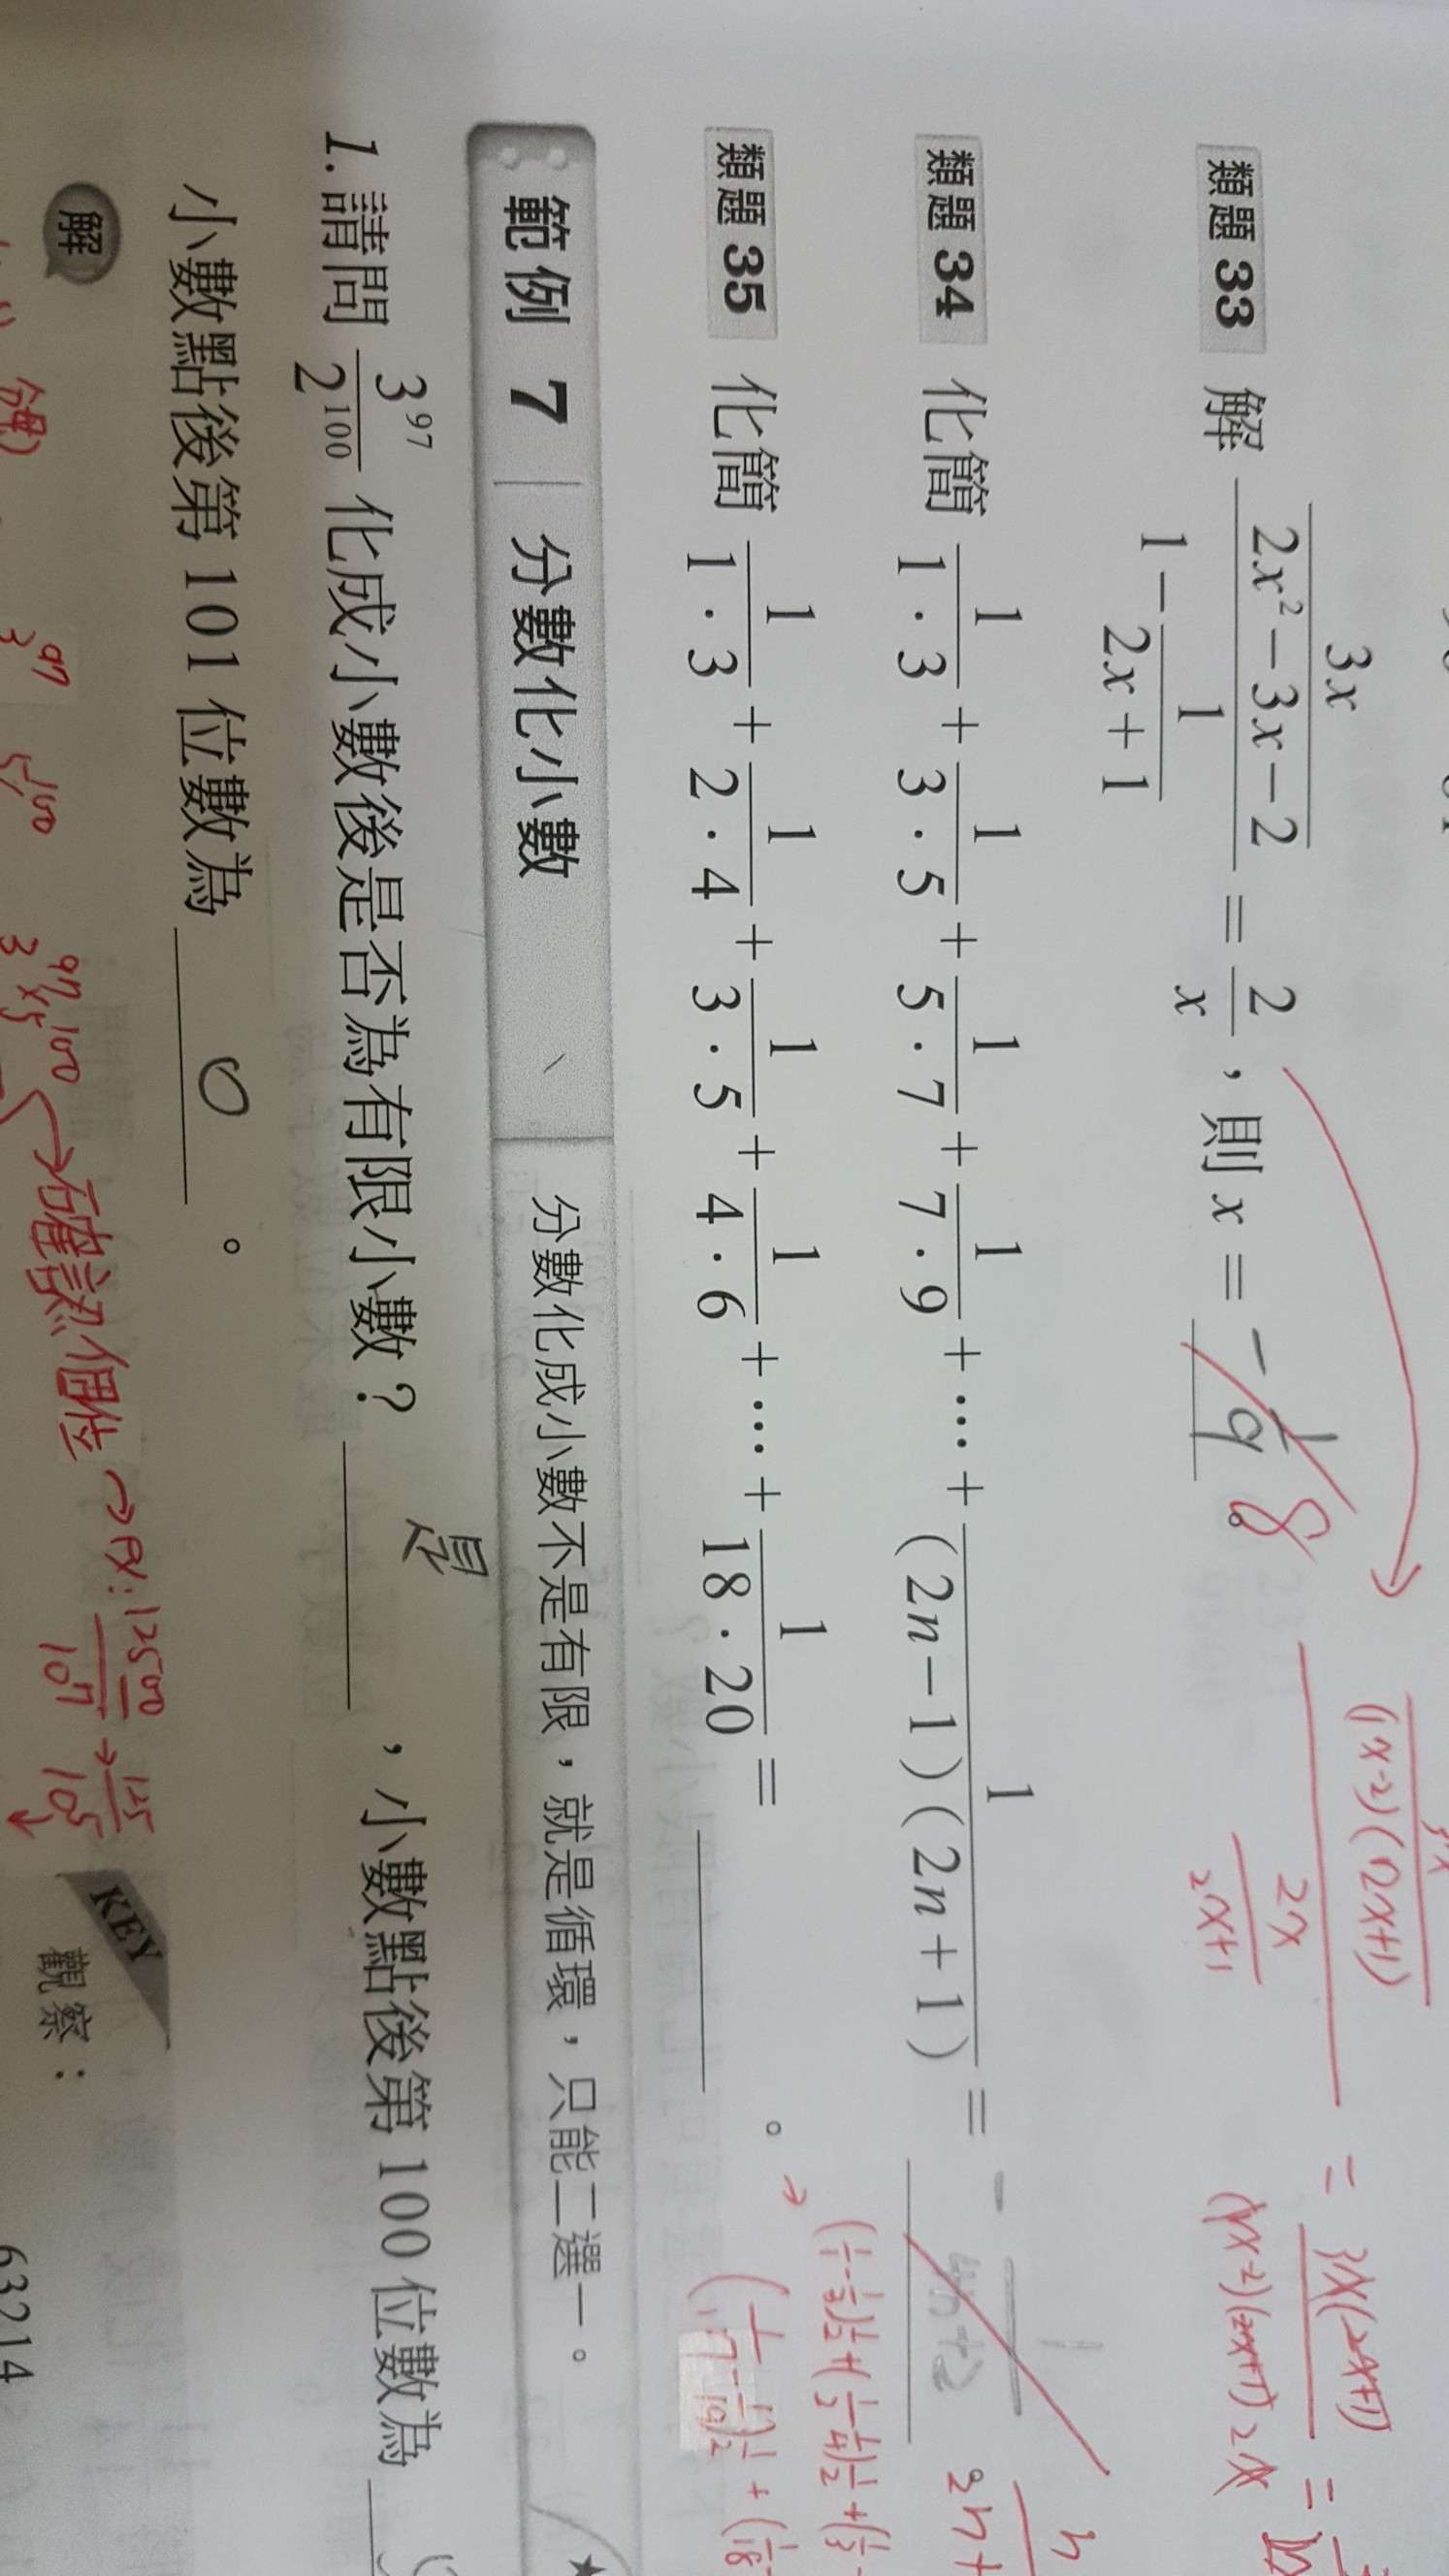 類題 33 解 \frac{\frac{3x}{2x²-3x-2}}{1-\frac{1}{2x+1}} = \frac{2}{x}，則 x = -\frac{1}{9} 8。
\frac{3x}{(x-2)(2x+1)}
\frac{2x}{2x+1}
= \frac{3x(2x+1)}{(x-2)(2x+1)2x} =
類題 34 化簡 \frac{1}{1·3} + \frac{1}{3·5} + \frac{1}{5·7} + \frac{1}{7·9} + … + \frac{1}{(2n-1)(2n+1)} =
類題 35 化簡 \frac{1}{1·3} + \frac{1}{2·4} + \frac{1}{3·5} + \frac{1}{4·6} + … + \frac{1}{18·20} = 。
範例 7 分數化小數 分數化成小數不是有限，就是循環，只能二選一。 ★
1. 請問 \frac{3^{97}}{2^{100}} 化成小數後是否為有限小數？ 是 ，小數點後第 100 位數為
小數點後第 101 位數為 0 。
解
3^{97} 5^{100} 3^{97}×5^{100} → 確認個位 → ex: \frac{12500}{10^7} → \frac{125}{10^5}
KEY
觀察：
63214